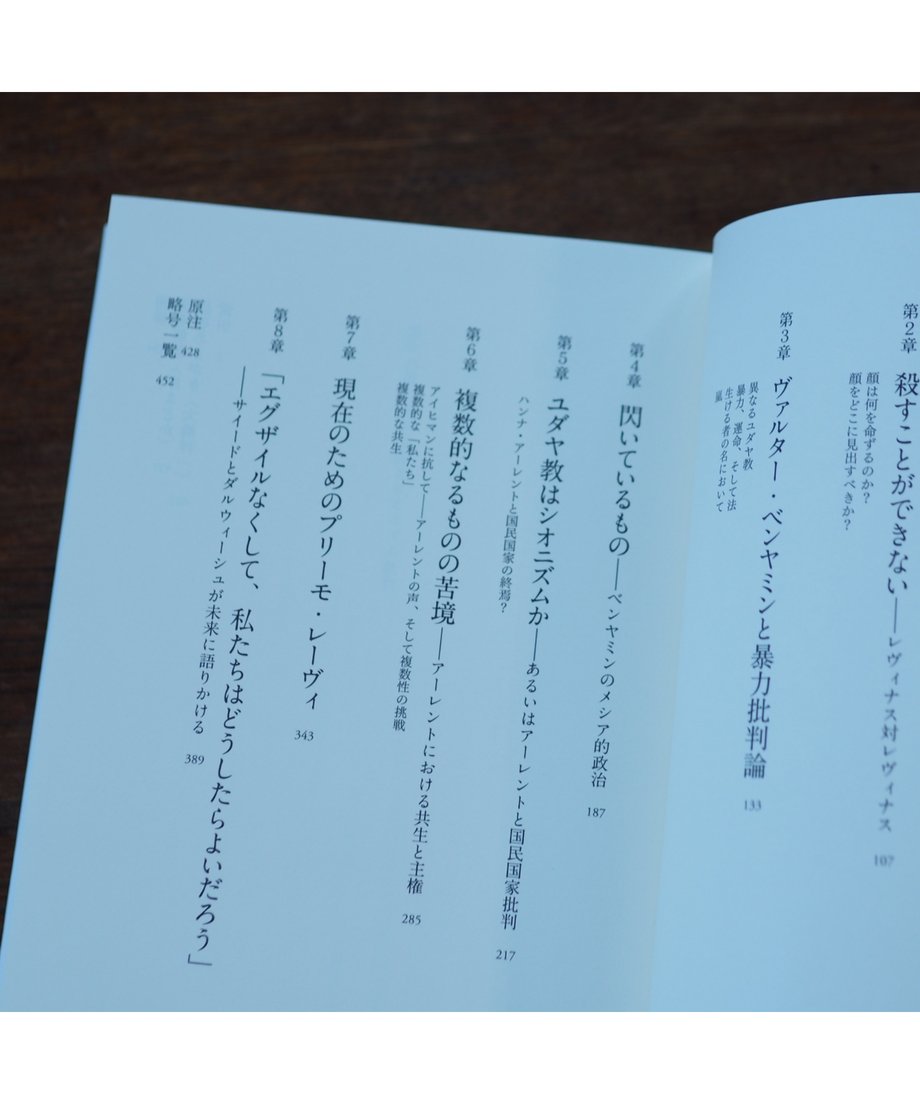 第2章 殺すことができない――レヴィナス対レヴィナス 107
顔は何を命ずるのか？
顔をどこに見出すべきか？
第3章 ヴァルター・ベンヤミンと暴力批判論 133
異なるユダヤ教
暴力、運命、そして法
生ける者の名において
嵐
第4章 閃いているもの――ベンヤミンのメシア的政治 187
第5章 ユダヤ教はシオニズムか――あるいはアーレントと国民国家批判 217
ハンナ・アーレントと国民国家の終焉？
第6章 複数的なるものの苦境――アーレントにおける共生と主権 285
アイヒマンに抗して――アーレントの声、そして複数性の挑戦
複数的な「私たち」
複数的な共生
第7章 現在のためのプリーモ・レーヴィ 343
第8章 「エグザイルなくして、私たちはどうしたらよいだろう」
――サイードとダルウィーシュが未来に語りかける 389
原注 428
略号一覧 452